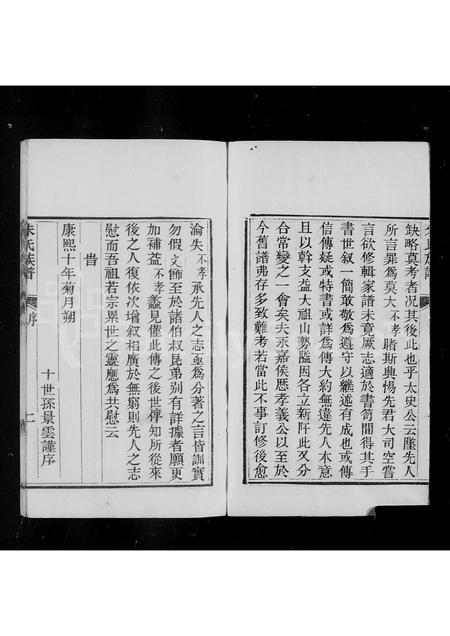 缺略莫考者况其後此也乎太史公云墜先人
所言罪爲莫大不孝睹斯與惕先君大司空嘗
言欲修輯家譜未竟厥志適於書笥間得其手
書世叙一簡敢敬爲遵守以繼述有成也或傳
信傳疑或特書或詳爲傳大約無違先人本意
且以幹支益大祖山勢隘因各立新阡此又分
合常變之一會矣夫永嘉侯歷孝義公以至於
今舊譜弗存多致難考若當此不事訂修後愈
淪失不孝承先人之志亟爲分著之言皆訓實
勿假文飾至於諸伯叔昆弟别有詳據者願更
加補益不孝蠡見僅此傳之後世俾知所從來
後之人復依次增叙相廣於無窮則先人之志
慰而吾祖若宗累世之靈應爲共慰云
旹
康熙十年菊月朔
十世孫景雲謹序
朱氏族譜 序 二